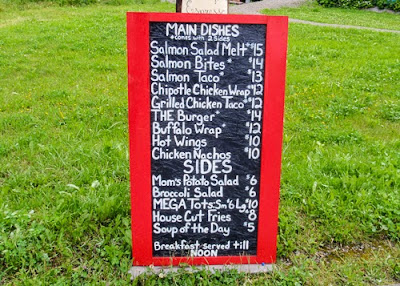 MAIN DISHES
*comes with 2 sides
Salmon Salad Melt* $15
Salmon Bites* $14
Salmon Taco* $13
Chipotle Chicken Wrap* $12
Grilled Chicken Taco* $12
THE Burger* $14
Buffalo Wrap* $12
Hot Wings $10
Chicken Nachos $10
SIDES
Mom's Potato Salad $6
Broccoli Salad $6
MEGA Tots-Sm $6 Lg $10
House Cut Fries $8
Soup of the Day $5
Breakfast served till
NOON